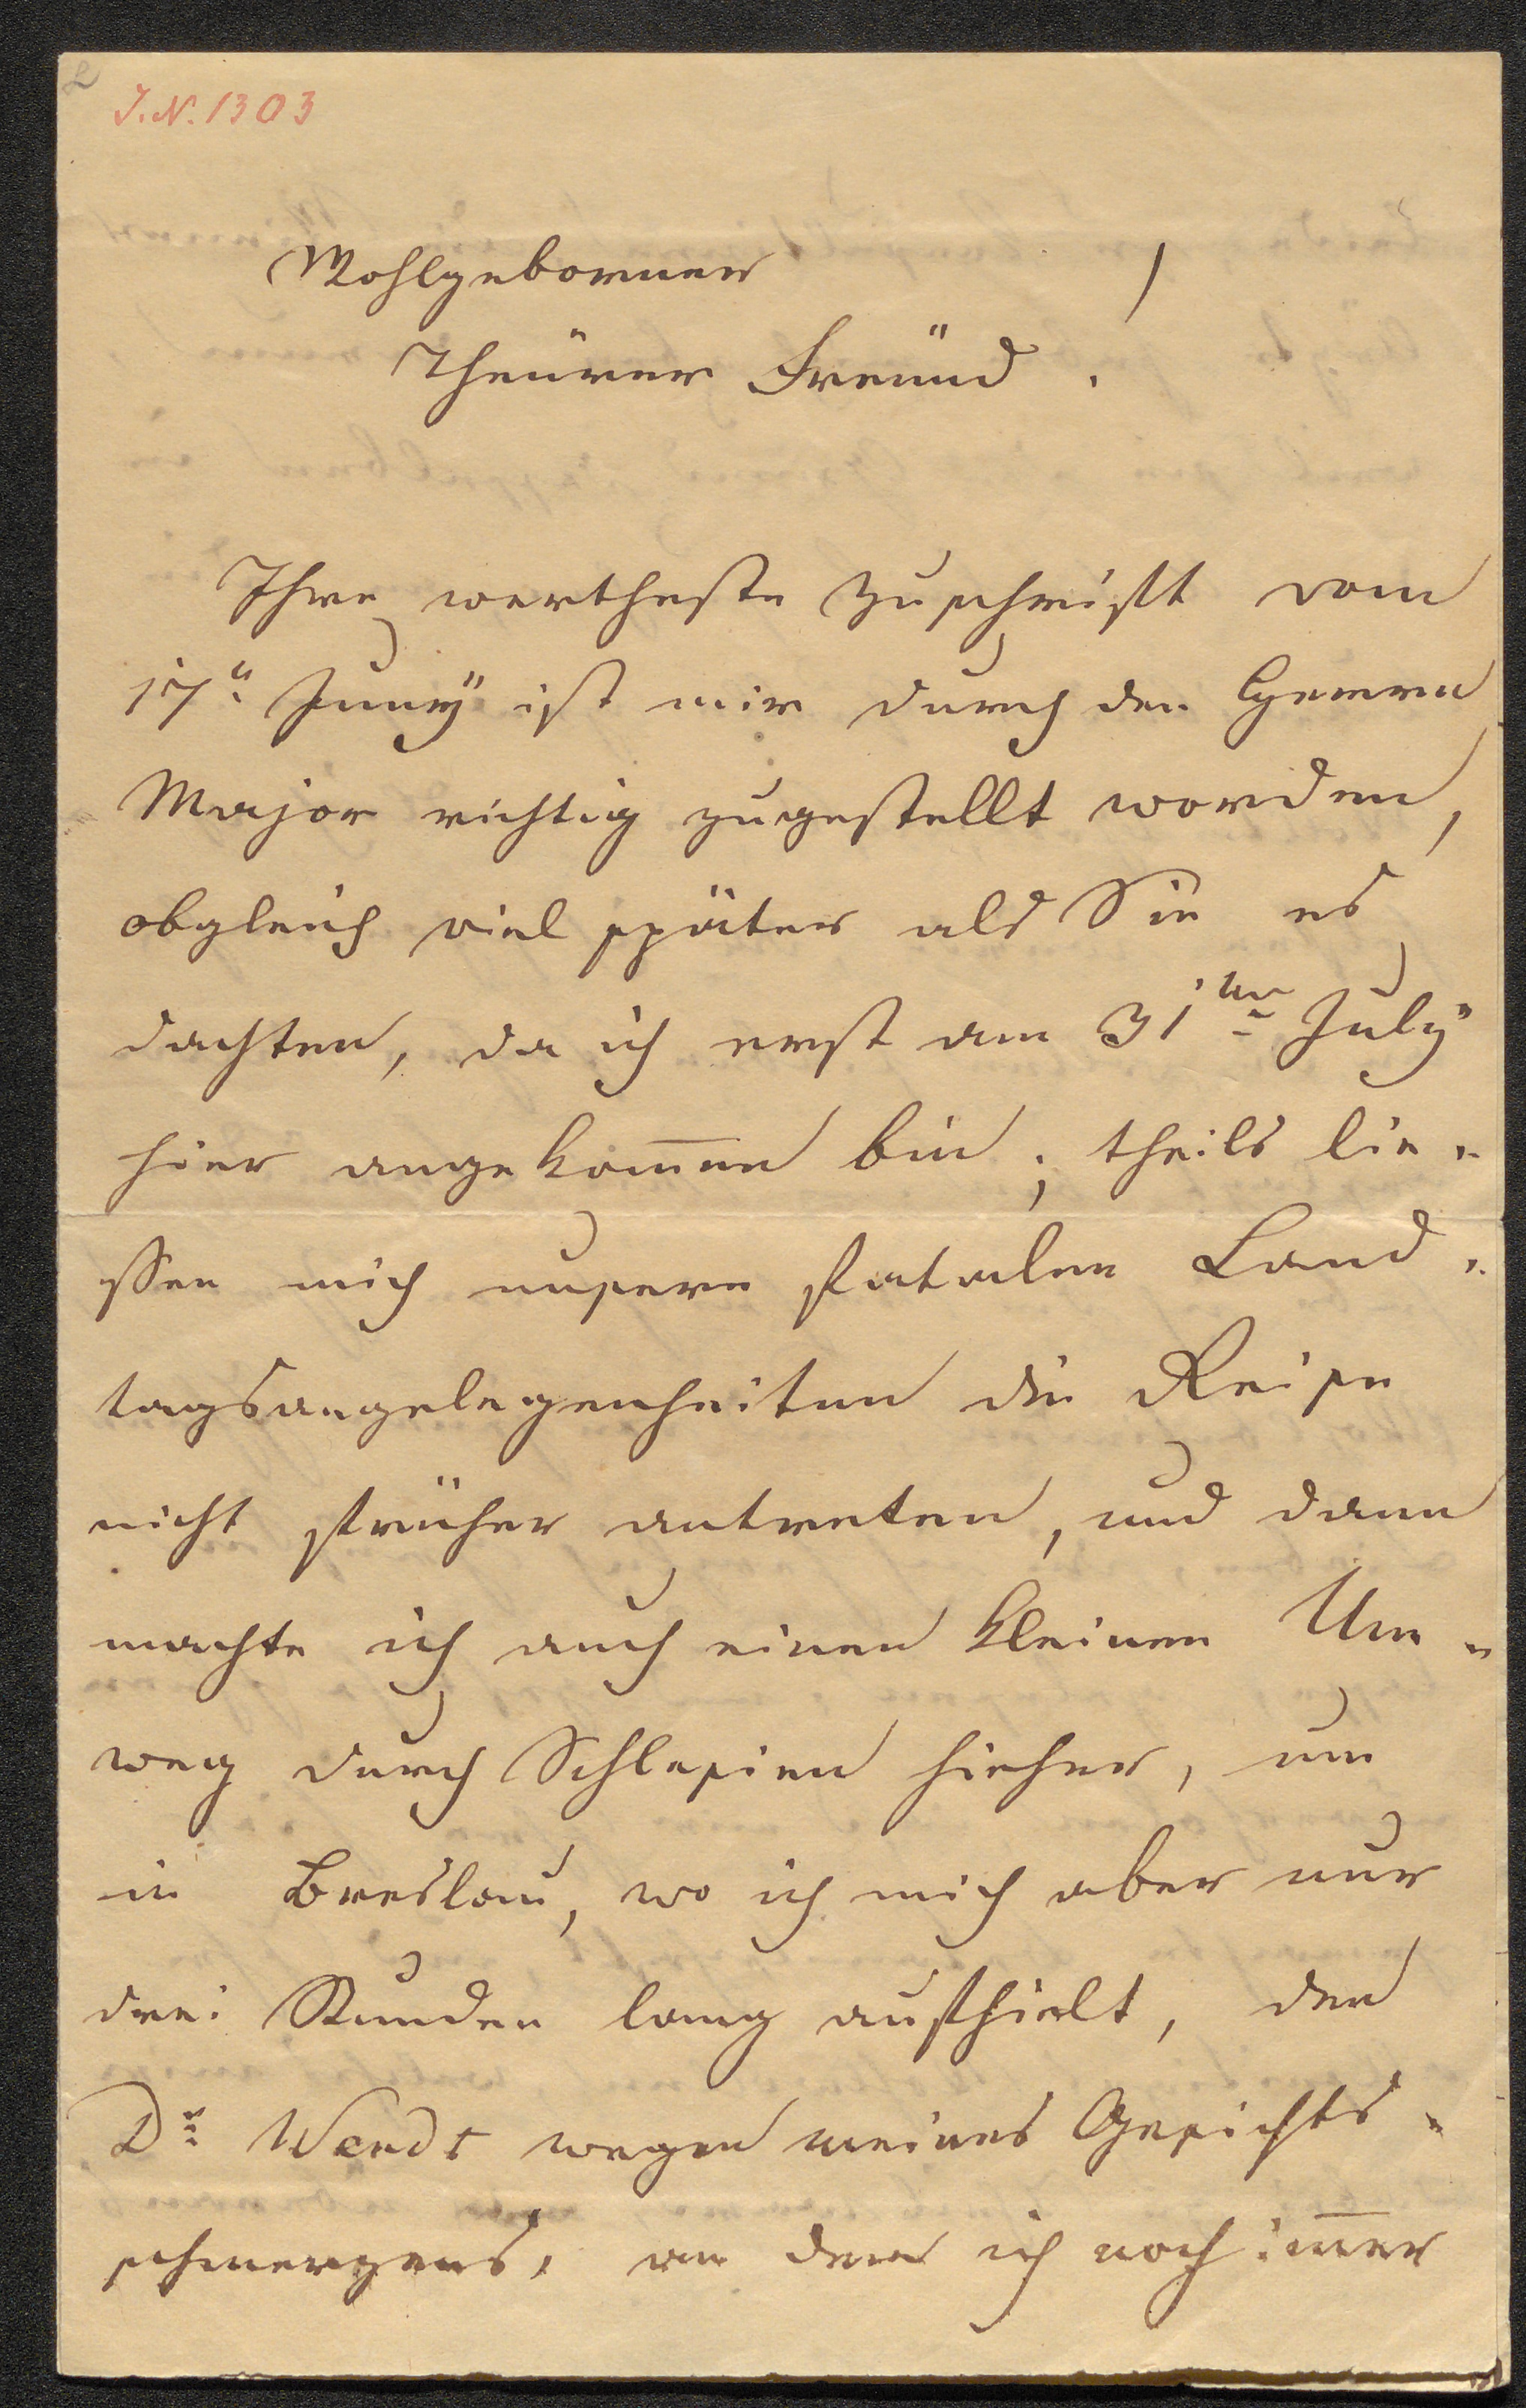 2
J.N. 1303
Wohlgeborner
Theürer Freünd!
Ihre wertheste Zuschrift vom
17n Juny ist mir durch den Herrn
Major richtig zugestellt worden,
obgleich viel später als Sie es
dachten, da ich erst am 31ten July
hier angekom̅en bin; theils lie-
ssen mich unsere fatalen Land-
tagsangelegenheiten die Reise
nicht früher antreten, und dann
machte ich auch einen kleinen Um-
weg durch Schlesien hieher, um
in Breslau, wo ich mich aber nur
drei Stunden lang aufhielt, den
Dr Wendt wegen meines Gesichts-
schmerzens, an dem ich noch im̅er